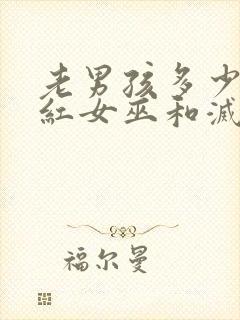 老男孩多少
红女巫和滅
福尔曼